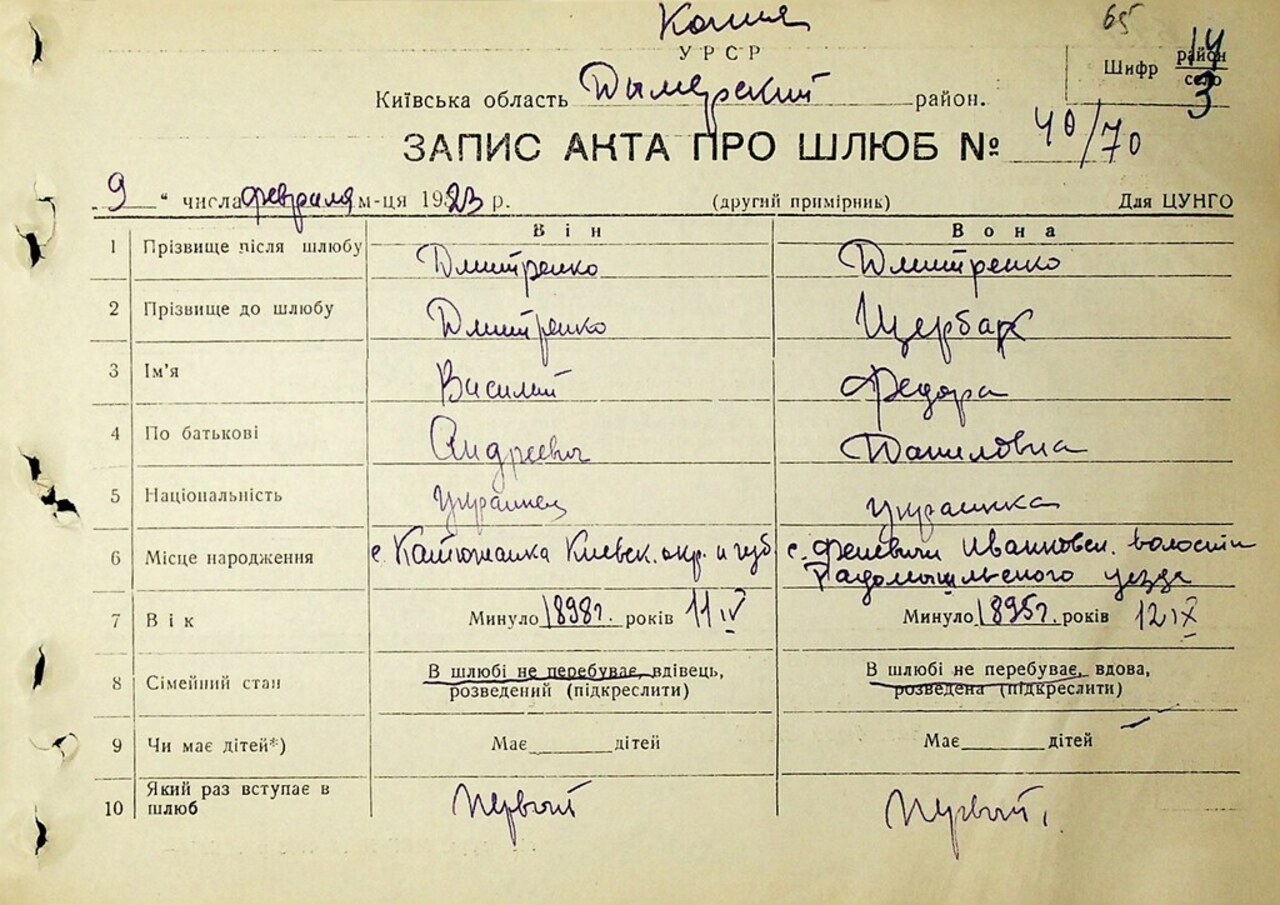 Копия 65
УРСР
Шифр район 14
село 3
Київська область Дымерский район.
ЗАПИС АКТА ПРО ШЛЮБ № 40/70
9 “ числа февраля м-ця 1923 р. (другий примірник) Для ЦУНГО
Він Вона
1 Прізвище після шлюбу Дмитренко Дмитренко
2 Прізвище до шлюбу Дмитренко Щербак
3 Ім’я Василий Федора
4 По батькові Андреевич Даниловна
5 Національність украинец украинка
6 Місце народження с. Катюжанка Киевск. окр. и губ с. Феневичи Иванковск. волости
Радомышльского уезда
7 Вік Минуло 1898г. років 11 IV Минуло 1895г. років 12 IX
8 Сімейний стан В шлюбі не перебуває, вдівець, В шлюбі не перебуває, вдова,
розведений (підкреслити) розведена (підкреслити)
9 Чи має дітей*) Має дітей Має дітей
10 Який раз вступає в
шлюб первый первый